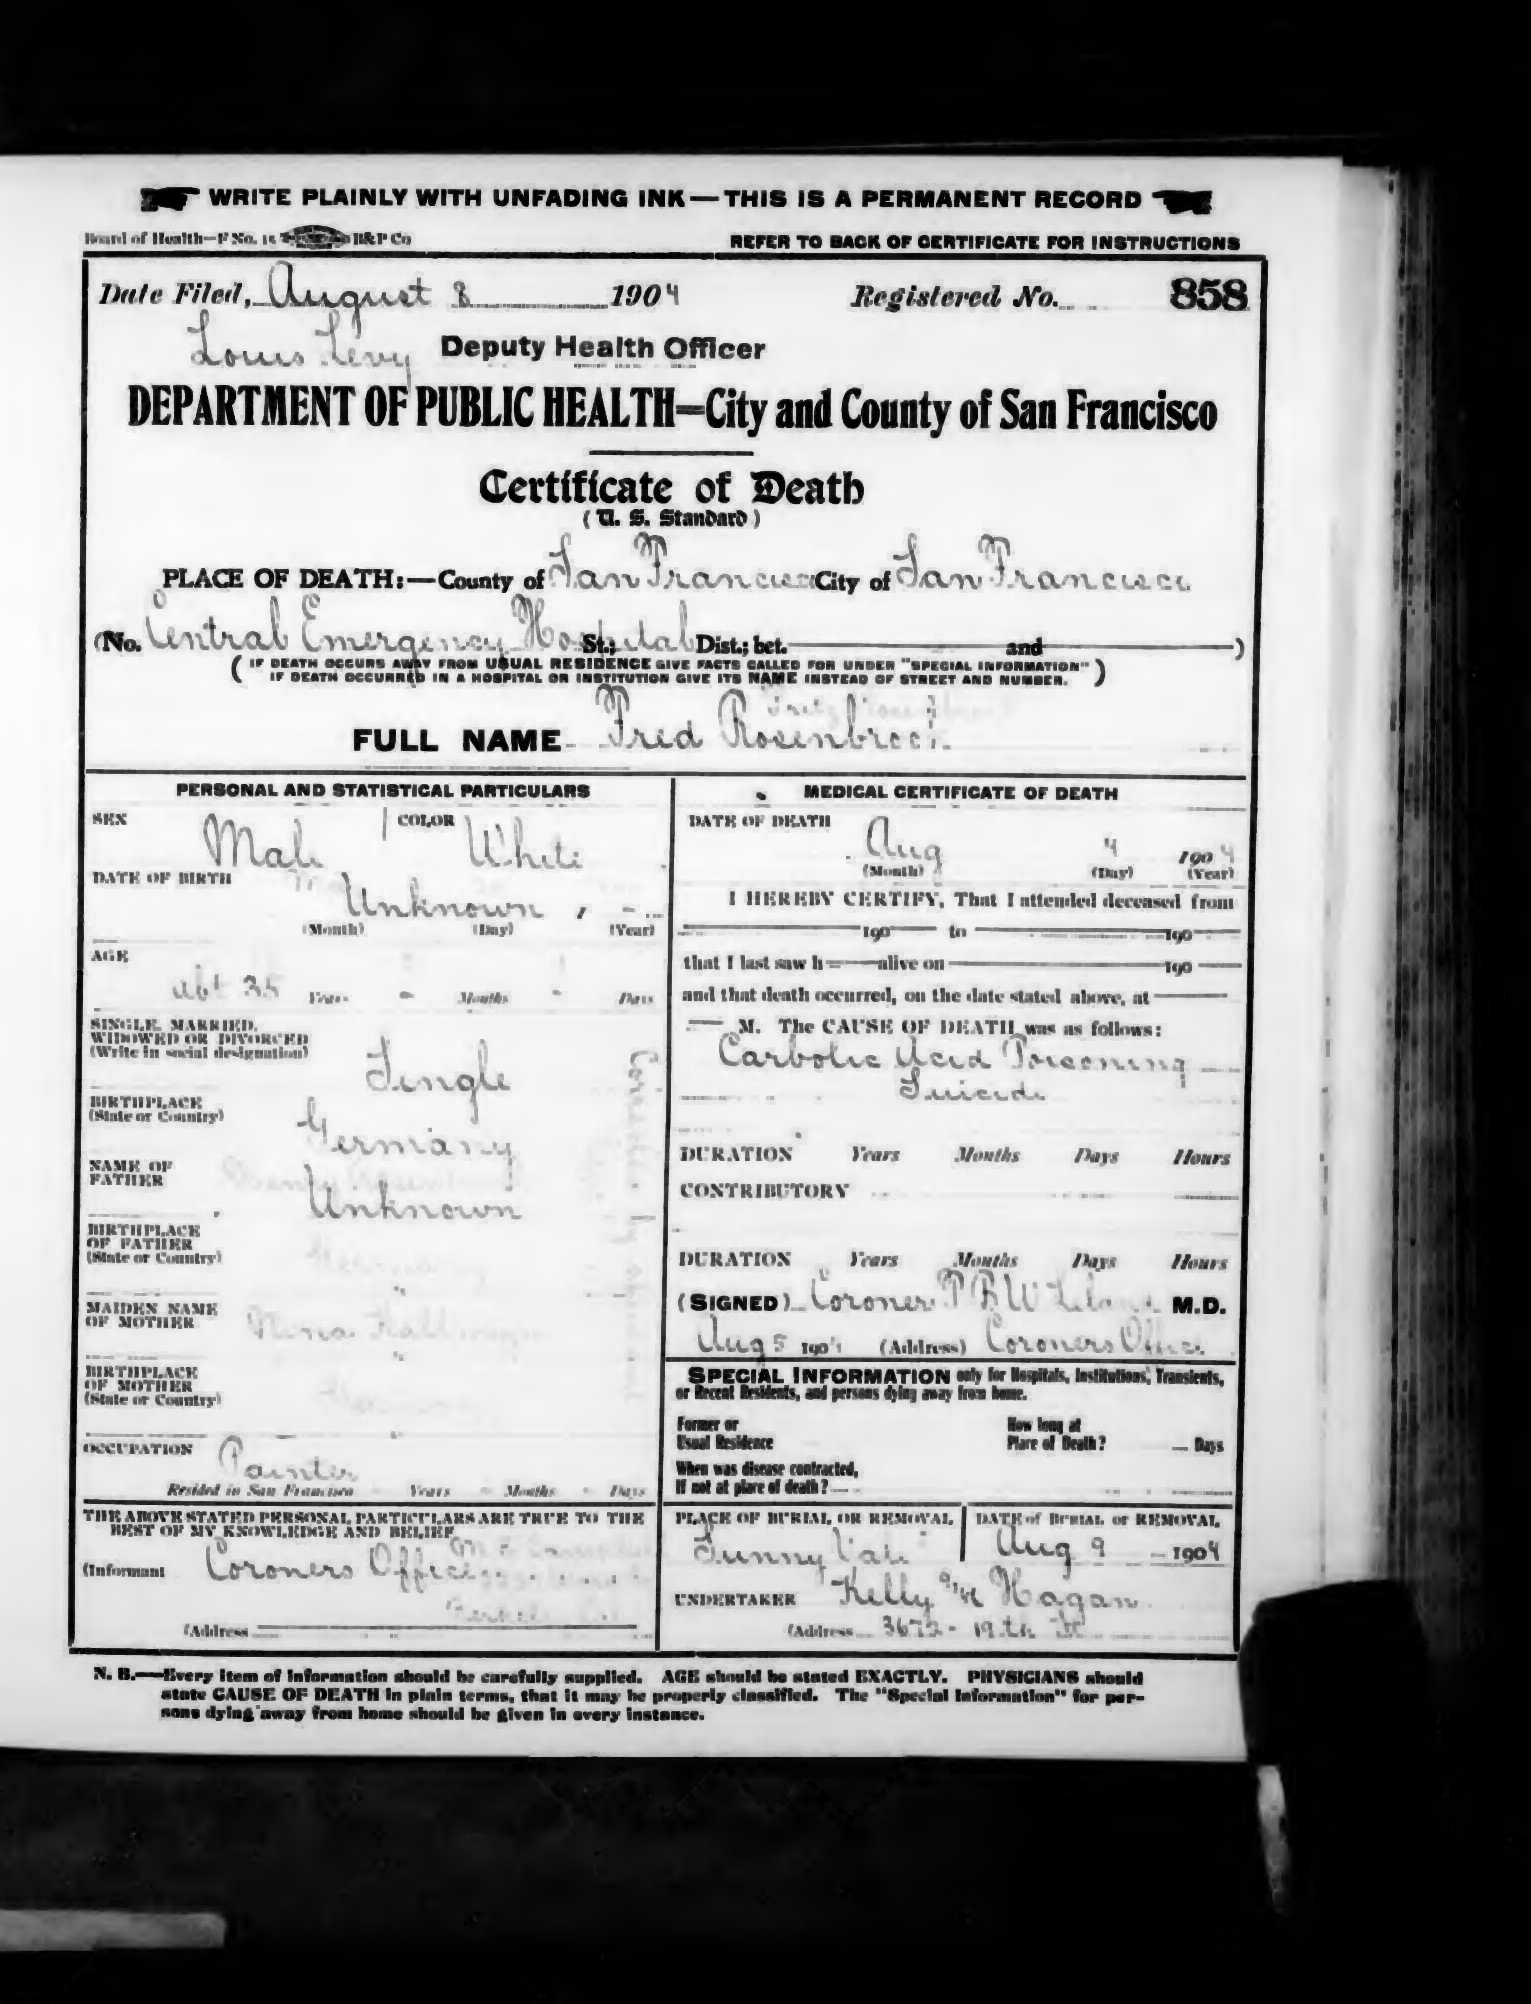 WRITE PLAINLY WITH UNFADING INK—THIS IS A PERMANENT RECORD
Board of Health—F No. 15 B&P Co
REFER TO BACK OF CERTIFICATE FOR INSTRUCTIONS
Date Filed, August 8 1904 Registered No. 858
Louis Levy Deputy Health Officer
DEPARTMENT OF PUBLIC HEALTH=City and County of San Francisco
Certificate of Death
(U. S. Standard)
PLACE OF DEATH:—County of San Francisco City of San Francisco
(No. Central Emergency Hospital St.; Dist.; bet. and )
( IF DEATH OCCURS AWAY FROM USUAL RESIDENCE GIVE FACTS CALLED FOR UNDER "SPECIAL INFORMATION" )
IF DEATH OCCURRED IN A HOSPITAL OR INSTITUTION GIVE ITS NAME INSTEAD OF STREET AND NUMBER.
FULL NAME Fred Rosenbrock
PERSONAL AND STATISTICAL PARTICULARS
SEX Male COLOR White
DATE OF BIRTH Unknown
(Month) (Day) (Year)
AGE
abt 35 Years - Months - Days
SINGLE, MARRIED,
WIDOWED OR DIVORCED
(Write in social designation)
Single
BIRTHPLACE
(State or Country)
Germany
NAME OF
FATHER
Unknown
BIRTHPLACE
OF FATHER
(State or Country)
Germany
"
MAIDEN NAME
OF MOTHER
"
BIRTHPLACE
OF MOTHER
(State or Country)
"
OCCUPATION Painter
Resided in San Francisco - Years - Months - Days
THE ABOVE STATED PERSONAL PARTICULARS ARE TRUE TO THE
BEST OF MY KNOWLEDGE AND BELIEF
(Informant Coroners Office
(Address
MEDICAL CERTIFICATE OF DEATH
DATE OF DEATH
Aug 4 1904
(Month) (Day) (Year)
I HEREBY CERTIFY, That I attended deceased from
190 to 190
that I last saw h alive on 190
and that death occurred, on the date stated above, at
M. The CAUSE OF DEATH was as follows:
Carbolic Acid Poisoning
Suicide
DURATION Years Months Days Hours
CONTRIBUTORY
DURATION Years Months Days Hours
(SIGNED) Coroner P B W Leland M.D.
Aug 5 1904 (Address) Coroners Office
SPECIAL INFORMATION only for Hospitals, Institutions, Transients,
or Recent Residents, and persons dying away from home.
Former or
Usual Residence
How long at
Place of Death? Days
When was disease contracted,
If not at place of death?
PLACE OF BURIAL OR REMOVAL DATE of BURIAL or REMOVAL
Sunny Vale Aug 9 1904
UNDERTAKER Kelly & Hagan
(Address 3672 - 19th St
N. B.—Every item of information should be carefully supplied. AGE should be stated EXACTLY. PHYSICIANS should
state CAUSE OF DEATH in plain terms, that it may be properly classified. The "Special Information" for per-
sons dying away from home should be given in every instance.